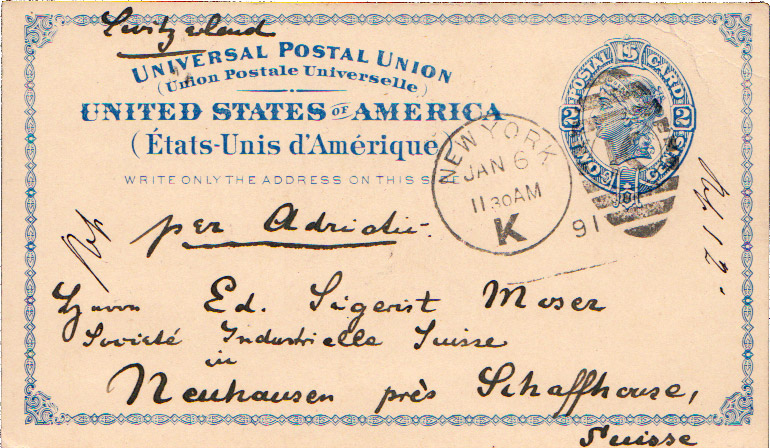 Switzerland
UNIVERSAL POSTAL UNION
(Union Postale Universelle)
UNITED STATES OF AMERICA
(États-Unis d'Amérique)
WRITE ONLY THE ADDRESS ON THIS SIDE
POSTAL CARD
2 2
TWO CENTS
NEW YORK
JAN 6
11 30 AM
K
91
per Adriatic.
Herrn Ed. Sigerist Moser
Societé Industrielle Suisse
in
Neuhausen près Schaffhouse,
Suisse